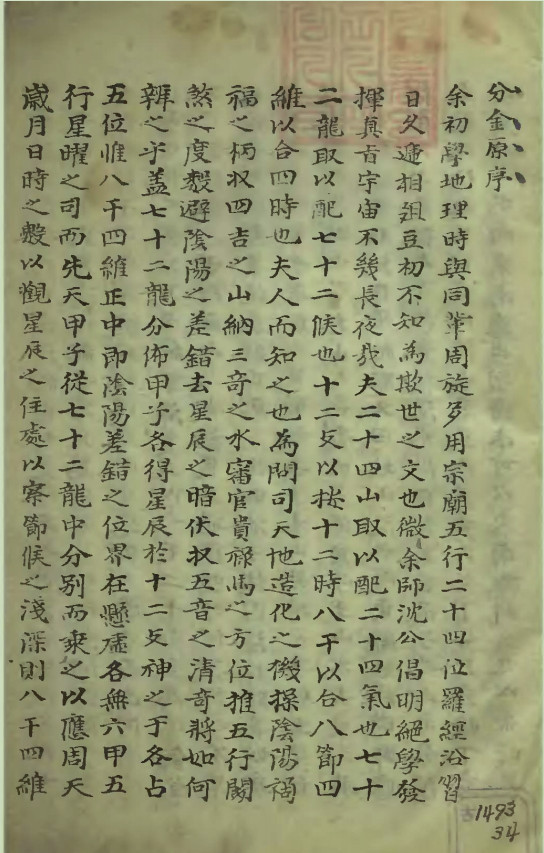 分金原序
余初學地理時與同輩周旋多用宗廟五行二十四位羅經沿習
日久遞相俎豆初不知為欺世之文也微余師沈公倡明絕學發
揮真旨宇宙不幾長夜哉夫二十四山取以配二十四氣也七十
二龍取以配七十二候也十二支以按十二時八干以合八節四
維以合四時也夫人而知之也為問司天地造化之機操陰陽禍
福之柄收四吉之山納三奇之水審官貴祿馬之方位推五行闗
煞之度數避陰陽之差錯去星辰之暗伏收五音之清奇將如何
辨之乎蓋七十二龍分佈甲子各得星辰於十二支神之于各占
五位惟八干四維正中即陰陽差錯之位界在懸虛各無六甲五
行星曜之司而先天甲子從七十二龍中分別而乘之以應周天
歲月日時之數以觀星辰之住處以察節候之淺深則八干四維
1493
34
古